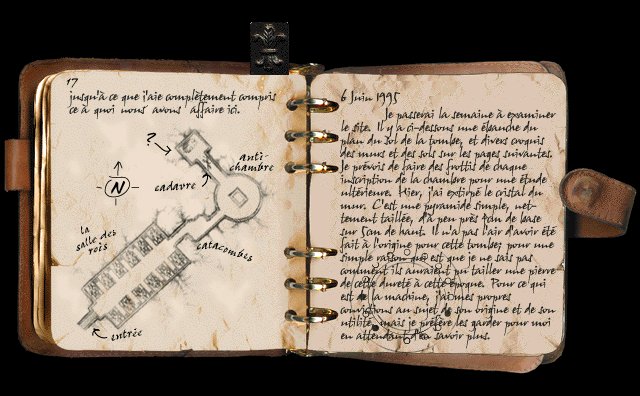 17
jusqu'à ce que j'aie complètement compris
ce à quoi nous avons affaire ici.
?
anti-
chambre
cadavre
N
la
salle des
rois
catacombes
entrée
6 Juin 1995
Je passerai la semaine à examiner
le site. Il y a ci-dessous une ébauche du
plan du sol de la tombe, et divers croquis
des murs et des sols sur les pages suivantes.
Je prévois de faire des frottis de chaque
inscription de la chambre pour une étude
ultérieure. Hier, j'ai extirpé le cristal du
mur. C'est une pyramide simple, net-
tement taillée, d'à peu près 9cm de base
sur 5cm de haut. Il n'a pas l'air d'avoir été
fait à l'origine pour cette tombe; pour une
simple raison que est que je ne sais pas
comment ils auraient pu tailler une pierre
de cette dureté à cette époque. Pour ce qui
est de la machine, j'ai mes propres
convictions au sujet de son origine et de son
utilité, mais je préfère les garder pour moi
en attendant d'en savoir plus.